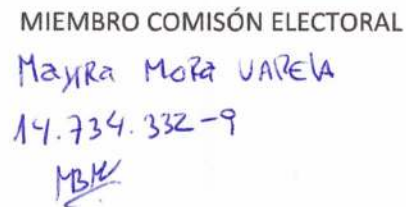 MIEMBRO COMISÓN ELECTORAL
MayRa MoRa VARElA
14.734.332-9